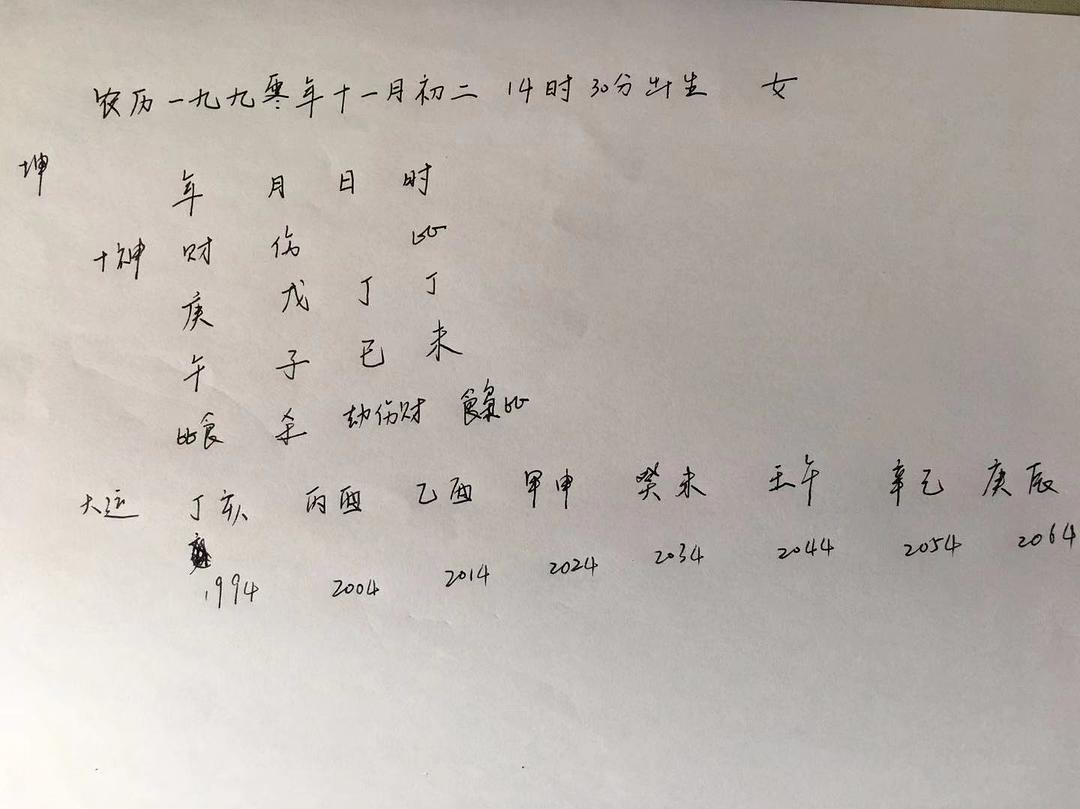 农历一九九零年十一月初二 14时30分出生 女
坤
年 月 日 时
十神 财 伤 比
庚 戊 丁 丁
午 子 巳 未
比食 杀 劫伤财 食枭比
大运 丁亥 丙酉 乙酉 甲申 癸未 壬午 辛巳 庚辰
1994 2004 2014 2024 2034 2044 2054 2064